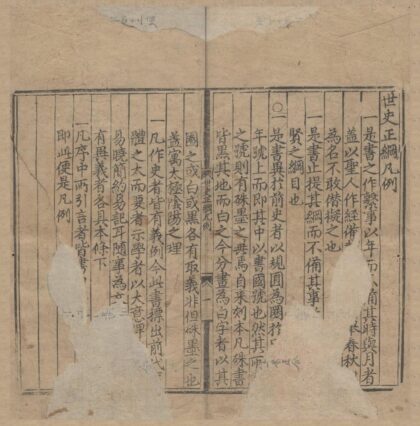 世史正綱凡例
一是書之作繫事以年而不備其時與月者
蓋以聖人作經備春秋
為名不敢僭擬之也
一是書止提其綱而不備其事
賢之綱目也
一是書與於前史者以規圓為圈於
年號上而即其中以書國號也然其所
之號則有硃墨之焉自來刻本凡硃書
皆黑其地而白之今分書為白字者以其
國之或白或黑各有取義非但硃墨之也
蓋寓大經陰陽之理
一凡作史者皆有義例今此書標出前代
體之大而要者示學者以大意俾
易曉簡約易記耳隨事為
有與義者各具本條下
一凡序中所引言者皆書
即此便是凡例